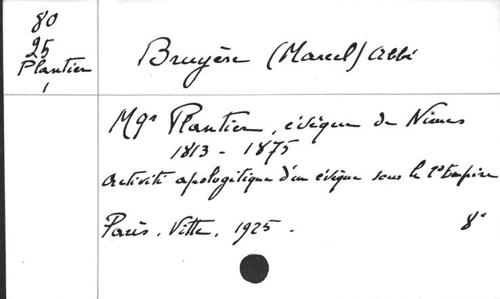 80
25
Plantier
1
Bruyère (Marcel) Abbé
Mgr Plantier, évêque de Nîmes
1813 - 1875
Activité apologétique d'un évêque sous le 2e Empire
Paris. Vitte. 1925. 8°